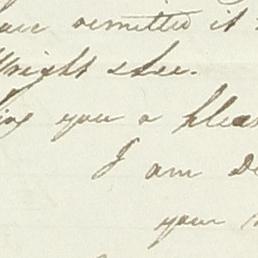 have remitted it
Wright else.
ing you a pleas
I am De
your